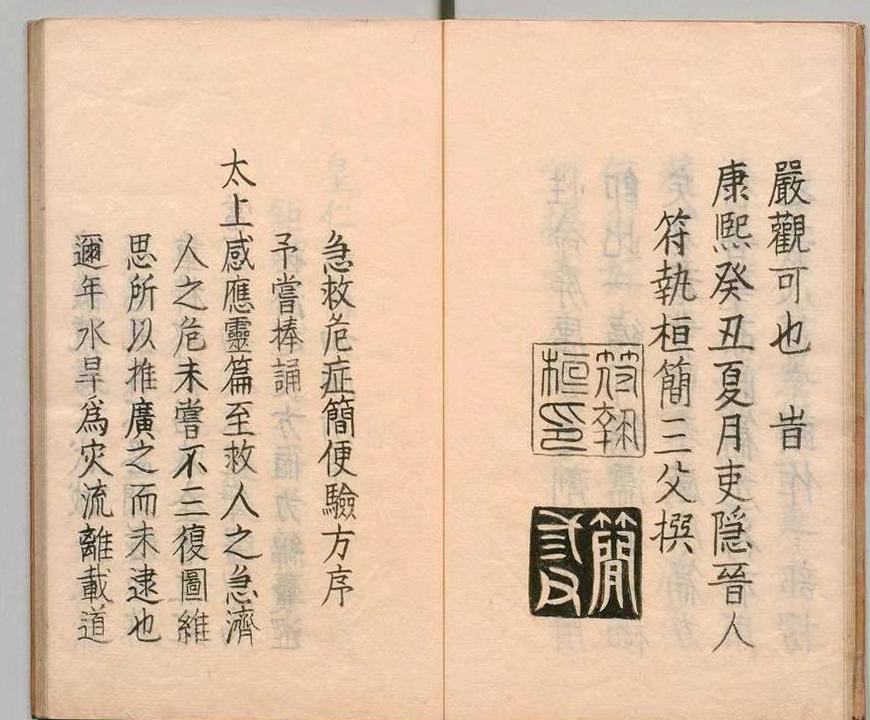 嚴觀可也 旹
康熙癸丑夏月吏隱晉人
符執桓簡三父撰
符執桓印
簡三父
急救危症簡便驗方序
予嘗捧誦
太上感應靈篇至救人之急濟
人之危未嘗不三復圖維
思所以推廣之而未逮也
邇年水旱爲灾流離載道